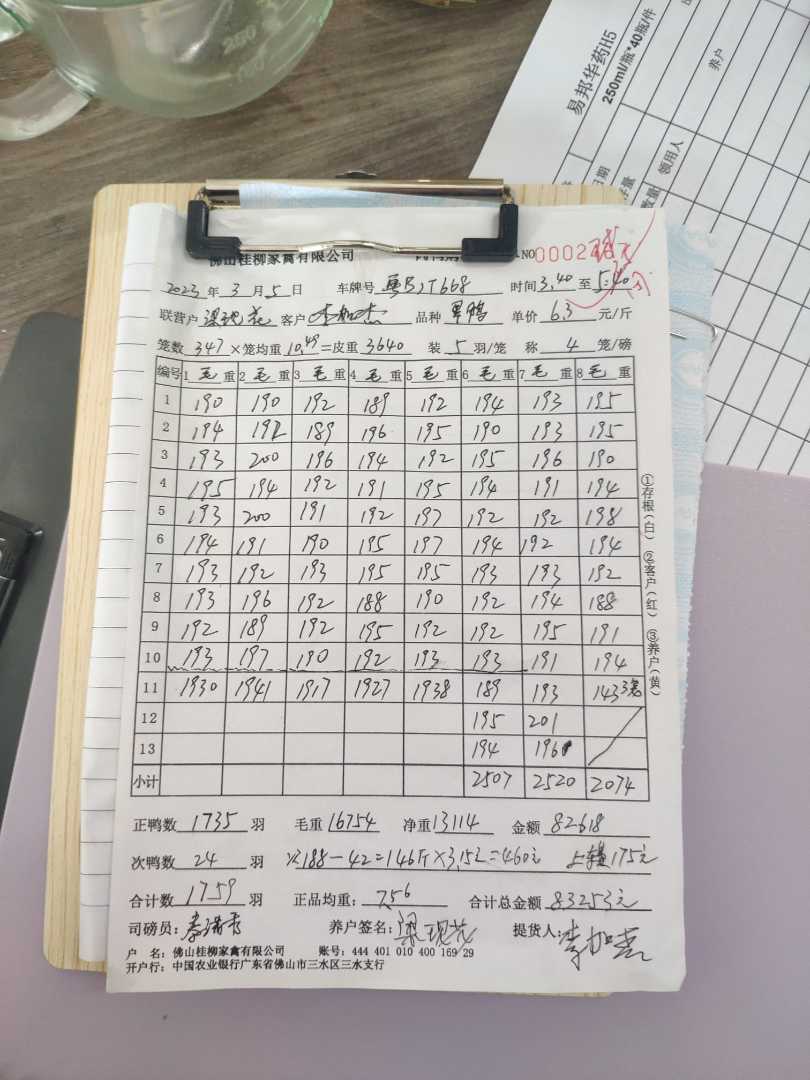 250
易邦华药H5
250ml/瓶*40瓶/件
养户
日期
数量 领用人
佛山桂柳家禽有限公司 NO
2023年3月5日 车牌号 粤B2T668 时间3.40至5.40
联营户 梁现花 客户 品种 单价6.3元/斤
笼数347×笼均重10.49=皮重3640 装5羽/笼 称4笼/磅
编号 1毛重 2毛重 3毛重 4毛重 5毛重 6毛重 7毛重 8毛重
1 190 190 192 189 192 194 193 195
2 194 192 189 196 195 190 193 195
3 193 200 196 194 192 195 196 190
4 195 194 192 191 195 194 191 194
5 193 200 191 192 197 192 192 198
6 194 191 190 195 197 194 192 194
7 193 192 193 195 195 193 193 192
8 193 196 192 188 190 192 194 188
9 192 189 192 195 192 192 195 191
10 193 197 190 192 193 193 191 194
11 1930 1941 1917 1927 1938 189 193 143 3笼
12 195 201
13 194 196
小计 2507 2520 2074
①存根(白) ②客户(红) ③养户(黄)
正鸭数1735羽 毛重16754 净重13114 金额82618
次鸭数24羽 188-42=146斤×3.15元=460元 175元
合计数1759羽 正品均重:7.56 合计总金额83253元
司磅员: 养户签名:梁现花 提货人:
户 名:佛山桂柳家禽有限公司 账号:444 401 010 400 169 29
开户行:中国农业银行广东省佛山市三水区三水支行